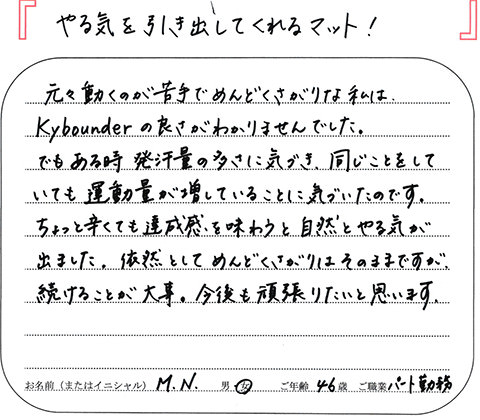 『やる気を引き出してくれるマット！』
元々動くのが苦手でめんどくさがりな私は、
Kybounderの良さがわかりませんでした。
でもある時発汗量の多さに気づき、同じことをして
いても運動量が増していることに気づいたのです。
ちょっと辛くても達成感を味わうと自然とやる気が
出ました。依然としてめんどくさがりはそのままですが、
続けることが大事。今後も頑張りたいと思います。
お名前（またはイニシャル） M.N. 男・女 ご年齢 46歳 ご職業 パート勤務